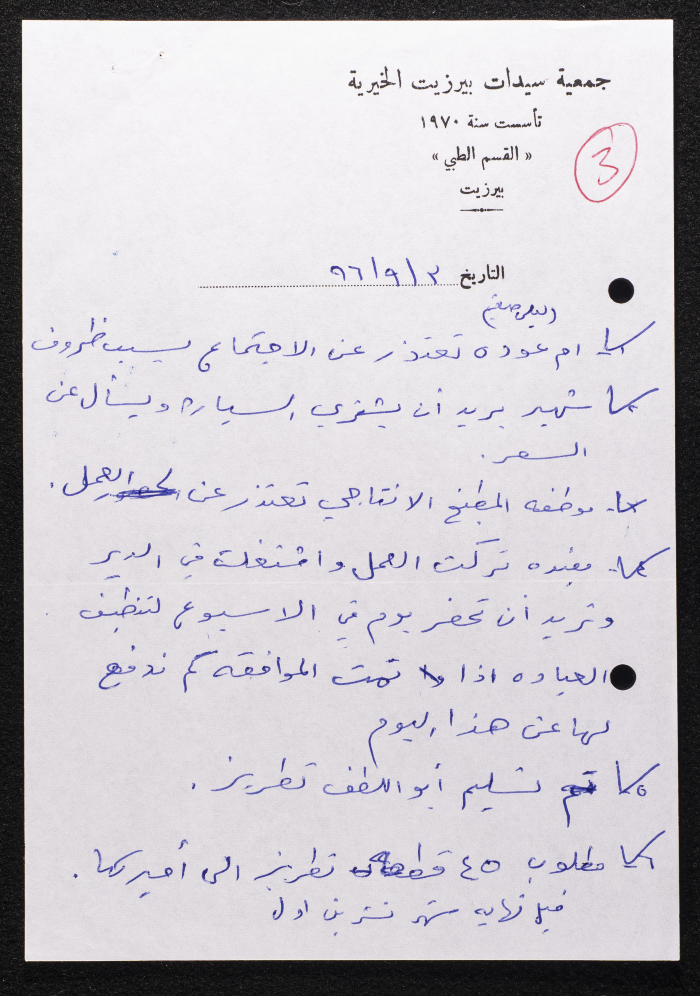 جمعية سيدات بيرزيت الخيرية
تأسست سنة ١٩٧٠
« القسم الطبي »
بيرزيت
3
التاريخ ٩٦/٩/٣
١- ام عوده تعتذر عن الاجتماع بسبب ظروف
٢- شهير يريد أن يشتري السيارة ويسأل عن
السعر.
٣- موظفه المطبخ الانتاجي تعتذر عن العمل.
٤- مفيده تركت العمل واشتغلت في الدير
وتريد أن تحضر يوم في الاسبوع لتنظيف
العياده اذا تمت الموافقه كم ندفع
لها عن هذا اليوم
٥- تم تسليم أبو اللطف تطريز.
٦- مطلوب ٤٥ قطعة تطريز الى أميركا.
قبل نهايه شهر تشرين اول